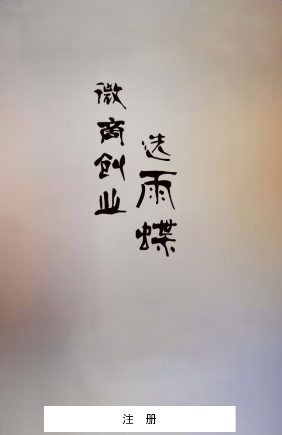 微商创业
选雨蝶
注 册